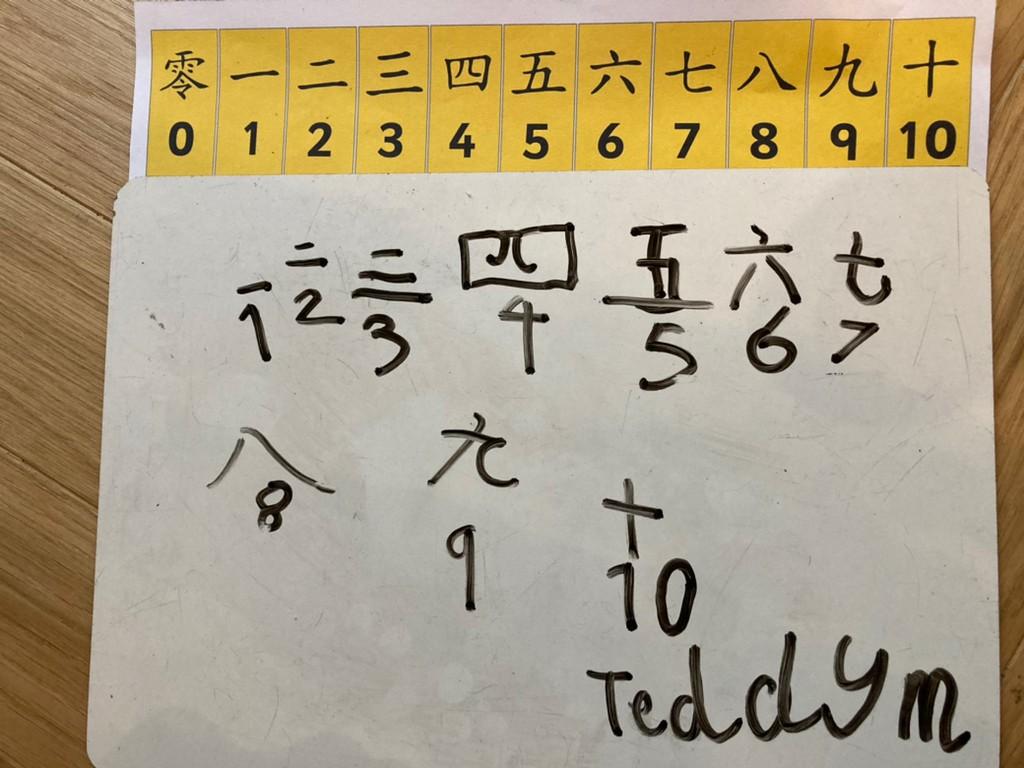 零 一 二 三 四 五 六 七 八 九 十
0 1 2 3 4 5 6 7 8 9 10
一 二 三 四 五 六 七
1 2 3 4 5 6 7
八 九 十
8 9 10
Teddy m